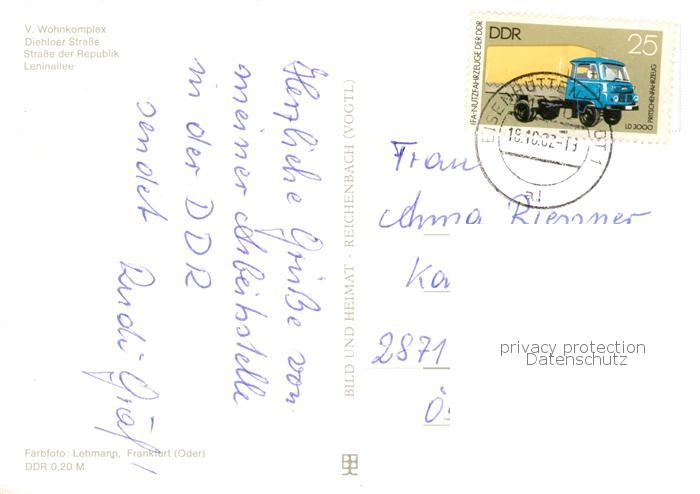 V. Wohnkomplex
Diehloer Straße
Straße der Republik
Leninallee
Herzliche Grüße von
meiner Arbeitsstelle
in der DDR
sendet Rudi Gräf!
BILD UND HEIMAT · REICHENBACH (VOGTL)
IFA-NUTZFAHRZEUGE DER DDR
DDR
25
LD 3000
PRITSCHENFAHRZEUG
18.10.82-19
Frau
Anna
2871
privacy protection
Datenschutz
Farbfoto: Lehmann, Frankfurt (Oder)
DDR 0,20 M